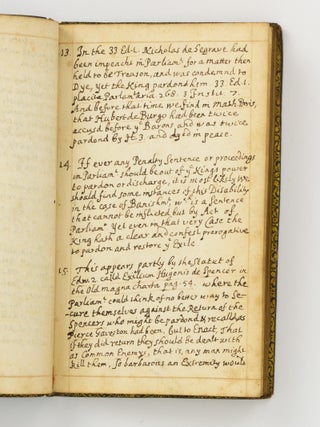 13. In the 33 Ed. 1. Nicholas de Segrave had
been impeacht in Parliamt. for a matter then
held to be Treason, and was condemnd to
Dye, yet the King pardond him 33 Ed. 1.
placita Parlam'aria 268. 3 Instit. 7.
And before that time we find in Math. Paris,
that Hubert de Burgo had been twice
accusd before ye Barons and was twice
pardond by H: 3. and dyed in peace.
14. If ever any Penalty Sentence, or proceedings
in Parliamt should be out of ye Kings power
to pardon or discharge, it is most likely we
should find some instances of this Disability
in the case of Banishmt, wch is a Sentence
that cannot be inflicted but by Act of
Parliamt yet even in that very Case the
King hath a clear and confest prerogative
to pardon and restore ye Exile
15. This appears partly by the Statut of
Edw 2 calld Exilium Hugonis de Spencer in
the Old magna charta pag. 54. where the
Parliamt could think of no better way to Se-
cure themselves against the Return of the
Spencers, who might be pardond & recalld as
Pierce Gaveston had been, but to Enact. That
if they did return they should be dealt with
as Common Enemys, that is any man might
kill them, so barbarous an Extremity would